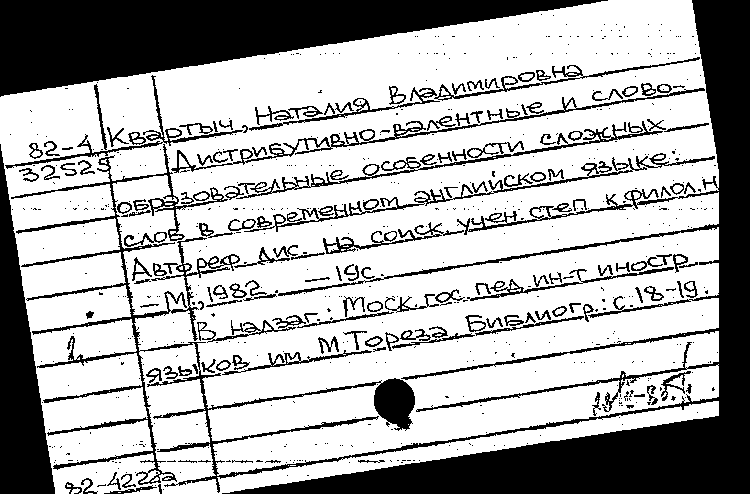 82-4 Квартыч, Наталия Владимировна
32525 Дистрибутивно-валентные и слово-
образовательные особенности сложных
слов в современном английском языке:
Автореф. дис. на соиск. учен. степ. к.филол.н
– М., 1982. – 19с.
В надзаг.: Моск. гос. пед. ин-т иностр.
языков им. М.Тореза. Библиогр.: с.18-19.
82-4222а